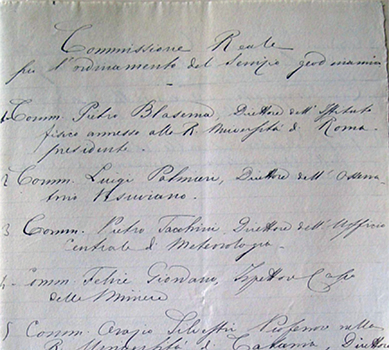 Commissione Reale
per l'ordinamento del Servizio geodinamico
1 Comm. Pietro Blaserna, Direttore dell'Istituto
fisico annesso alla R. Università di Roma
presidente.
2 Comm. Luigi Palmieri, Direttore dell'Osserva
torio Vesuviano.
3 Comm. Pietro Tacchini, Direttore dell'Ufficio
Centrale di Meteorologia.
4 Comm. Felice Giordano, Ispettore Capo
delle Miniere
5 Comm. Orazio Silvestri, Professore nella
R. Università di Catania, Direttore